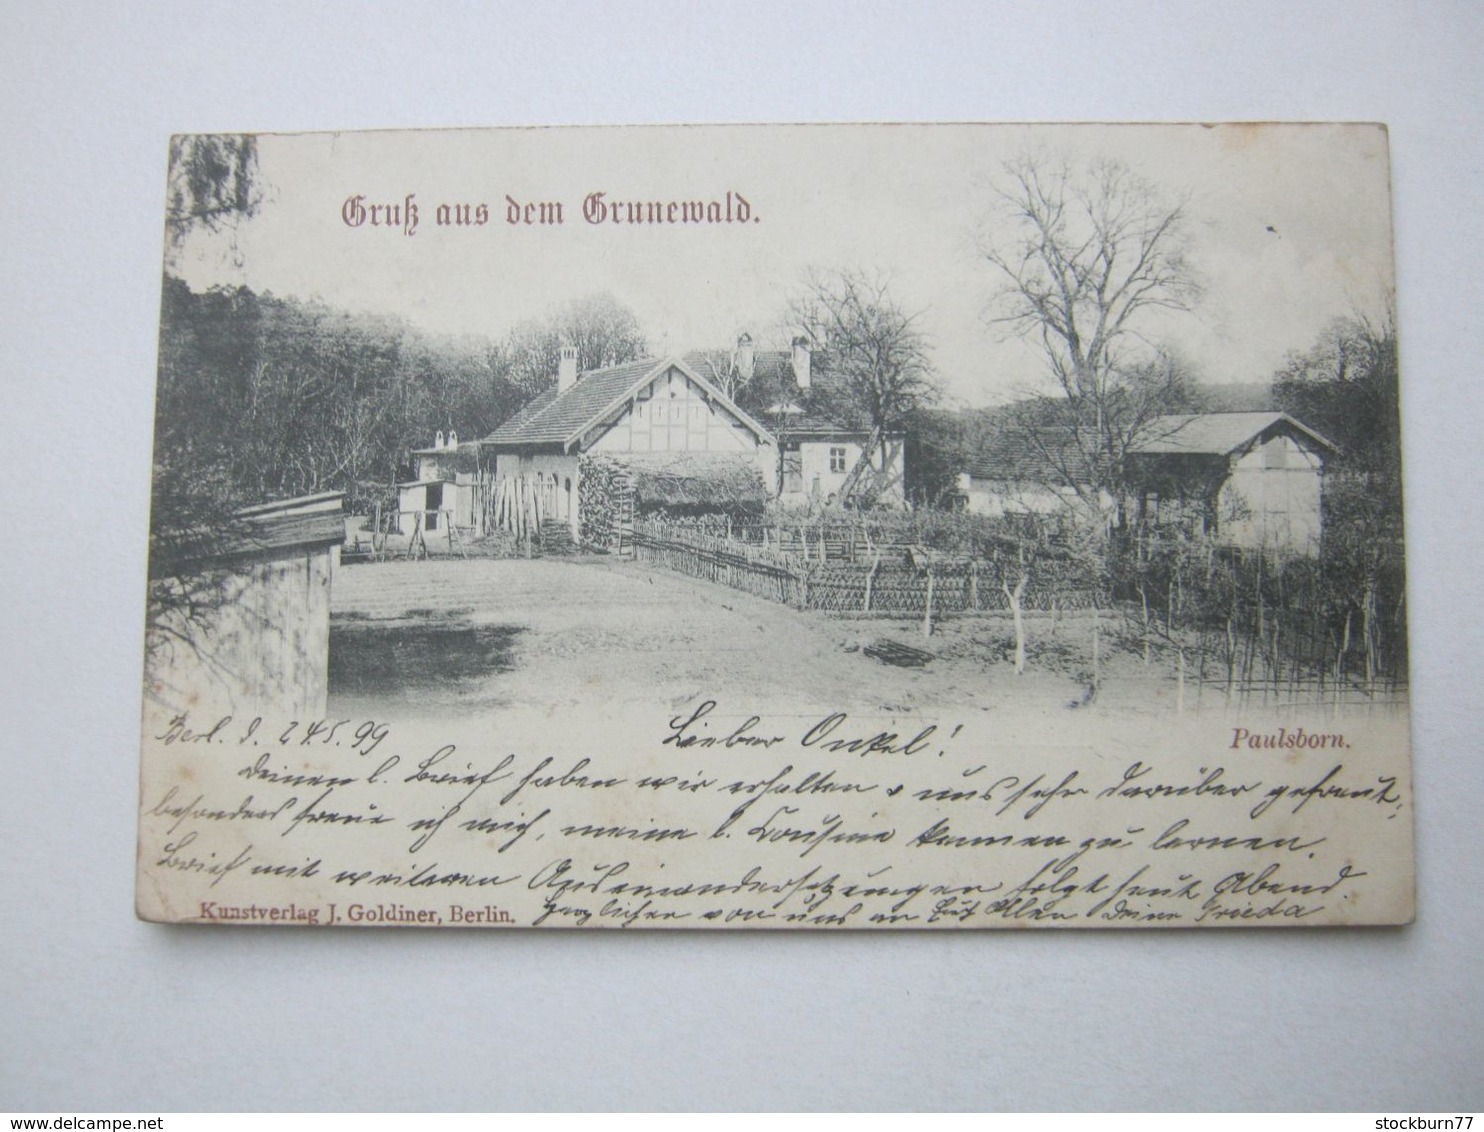 Gruß aus dem Grunewald.
Berl. d. 24.5.99
Lieber Onkel!
Paulsborn.
Deinen l. Brief haben wir erhalten & uns sehr darüber gefreut,
besonders freue ich mich, meine l. Cousine kennen zu lernen.
Brief mit weiteren Auseinandersetzungen folgt heut Abend
Kunstverlag J. Goldiner, Berlin.
von uns an Allen Deine Frieda
stockburn77
delcampe.net